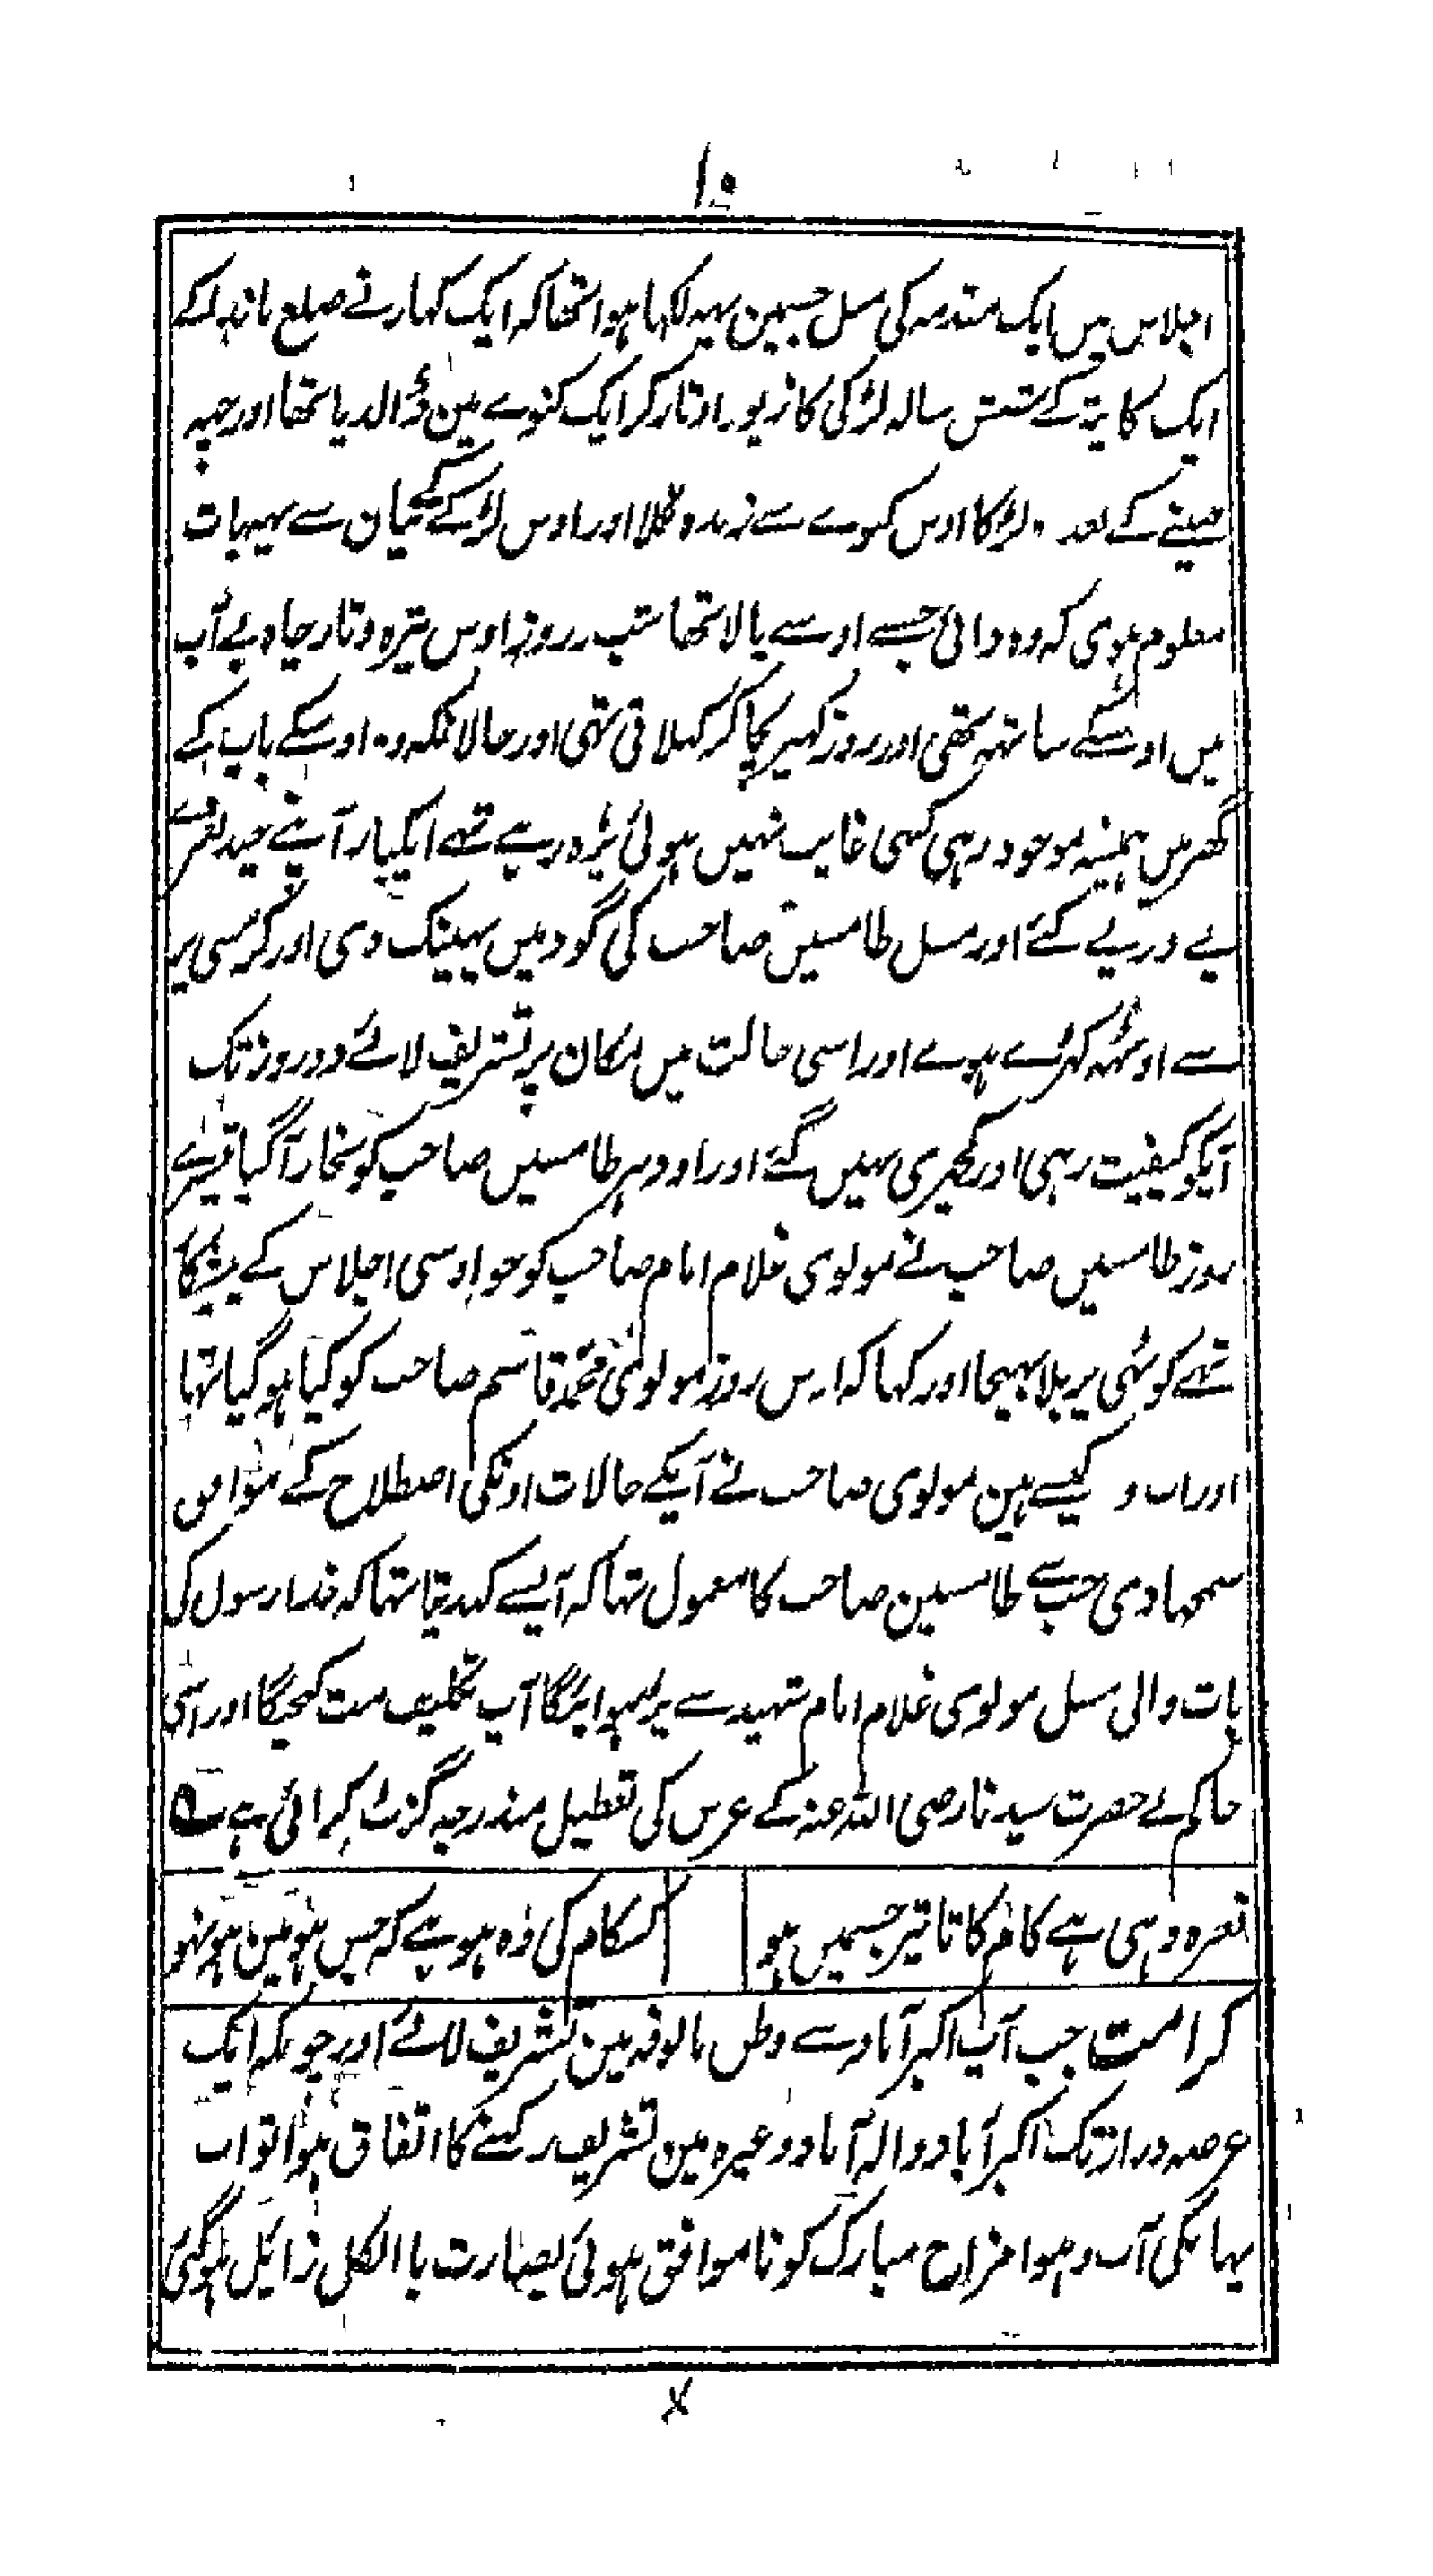 ۱۰
اجلاس میں ایک مقدمہ کی مسل جسمین یہہ لکہا ہوا تھا کہ ایک کہار نے ضلع باندہ کے
ایک کایتہ کے شش سالہ لڑکی کا زیور اوتار کر ایک کنوے مین ڈالدیا تھا اور چہہ
مہینے کے بعد وہ لڑکا اوس کنوے سے زندہ نکلا اور اوس لڑکے کے بیان سے یہہ بات
معلوم ہوی کہ وہ دائی جسے اوسے پالا تھا شب و روز اوس تیرہ و تار چاہ بے آب
میں اوسکے ساتھہ تھی اور روز کھیر پکا کر کہلاتی تہی اور حالانکہ وہ اوسکے باپ کے
گھر میں ہمیشہ موجود رہی کبہی غایب نہیں ہوئی پڑہ رہے تہے ایکبار آپنے چند نعرے
پے در پے کئے اور مسل طامسین صاحب کی گود میں پہینک دی اور کرسی پر
سے اوٹہہ کہڑے ہوے اور اسی حالت میں مکان پر تشریف لائے دو روز تک
آپکو کیفیت رہی اور کچہری نہیں گئے اور اودہر طامسین صاحب کو بخار آگیا تیسرے
روز طامسین صاحب نے مولوی غلام امام صاحب کو جو اوسی اجلاس کے پیشکار
تہے کوٹہی پر بلا بہیجا اور کہا کہ اوس روز مولوی محمد قاسم صاحب کو کیا ہو گیا تہا
اور اب وہ کیسے ہین مولوی صاحب نے آپکے حالات اونکی اصطلاح کے موافق
سمجہا دی جب سے طامسین صاحب کا معمول تہا کہ آپسے کہدیتا تہا کہ خدا رسول کی
بات والی مسل مولوی غلام امام شہید سے پڑہوائیگا آپ تکلیف مت کیجیگا اور اسی
حاکم نے حضرت سیدنا رضی اللہ عنہ کے عرس کی تعطیل مندرجہ گزٹ کرائی ہے
نعرہ وہی ہے کام کا تاثیر جسمیں ہو    کسکام کی وہ ہو ہے کہ جس ہو مین ہو نہو
کرامت جب آپ اکبر آباد سے وطن مالوفہ مین تشریف لائے اور چونکہ ایک
عرصہ دراز تک اکبر آباد و الہ آباد وغیرہ مین تشریف رکہنے کا اتفاق ہوا تو اب
یہانکی آب و ہوا مزاج مبارک کو ناموافق ہوئی بصارت باالکل زایل ہوگئی